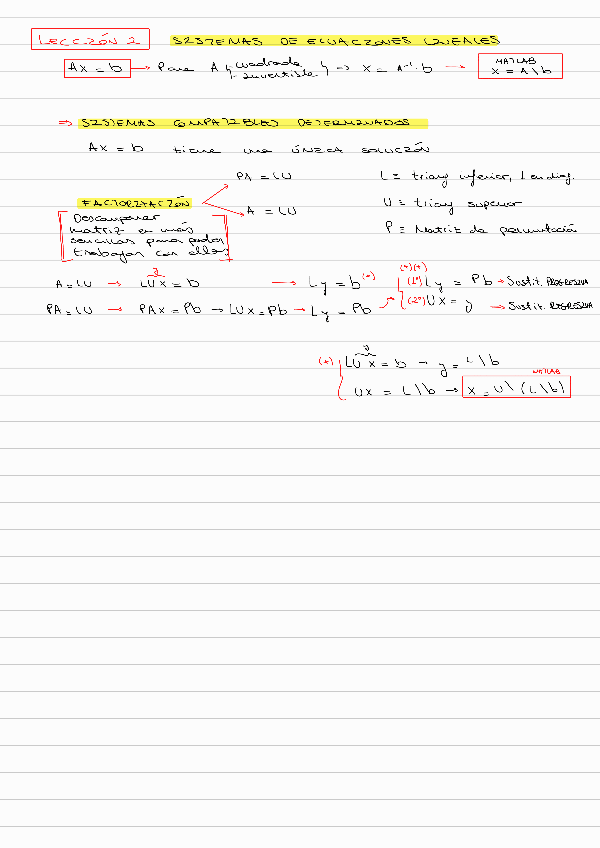 LECCIÓN 2 SISTEMAS DE ECUACIONES LINEALES
Ax = b → Para A { cuadrada invertible } → x = A⁻¹·b → MATLAB x = A\b
⇒ SISTEMAS COMPATIBLES DETERMINADOS
Ax = b tiene una ÚNICA SOLUCIÓN
PA = LU L ≡ triang inferior, 1 en diag.
FACTORIZACIÓN A = LU U ≡ triang superior
Descomponer
matriz en más
sencillas para poder
trabajar con ellas
P ≡ Matriz de permutació
A = LU → LUx = b → Ly = b (*)
y
PA = LU → PAx = Pb → LUx = Pb → Ly = Pb
(*)(*)
(1º) Ly = Pb → Sustit. PROGRESIVA
(2º) Ux = y → Sustit. REGRESIVA
(*) LUx = b → y = L\b
y
Ux = L\b → x = U\(L\b)
MATLAB